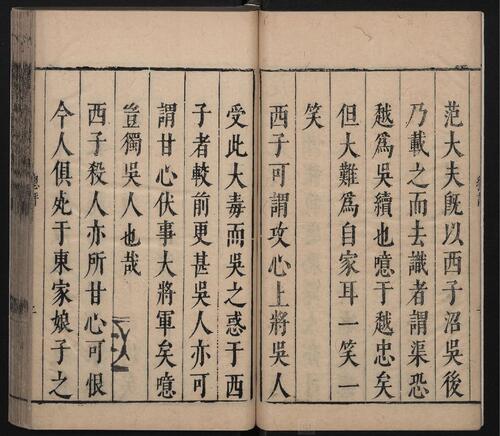 范大夫旣以西子沼吳後
乃載之而去識者謂渠恐
越爲吳續也噫于越忠矣
但大難爲自家耳一笑一
笑
西子可謂攻心上將吳人
受此大毒而吳之惑于西
子者較前更甚吳人亦可
謂甘心伏事大將軍矣噫
豈獨吳人也哉
西子殺人亦所甘心可恨
今人俱死于東家娘子之
總評